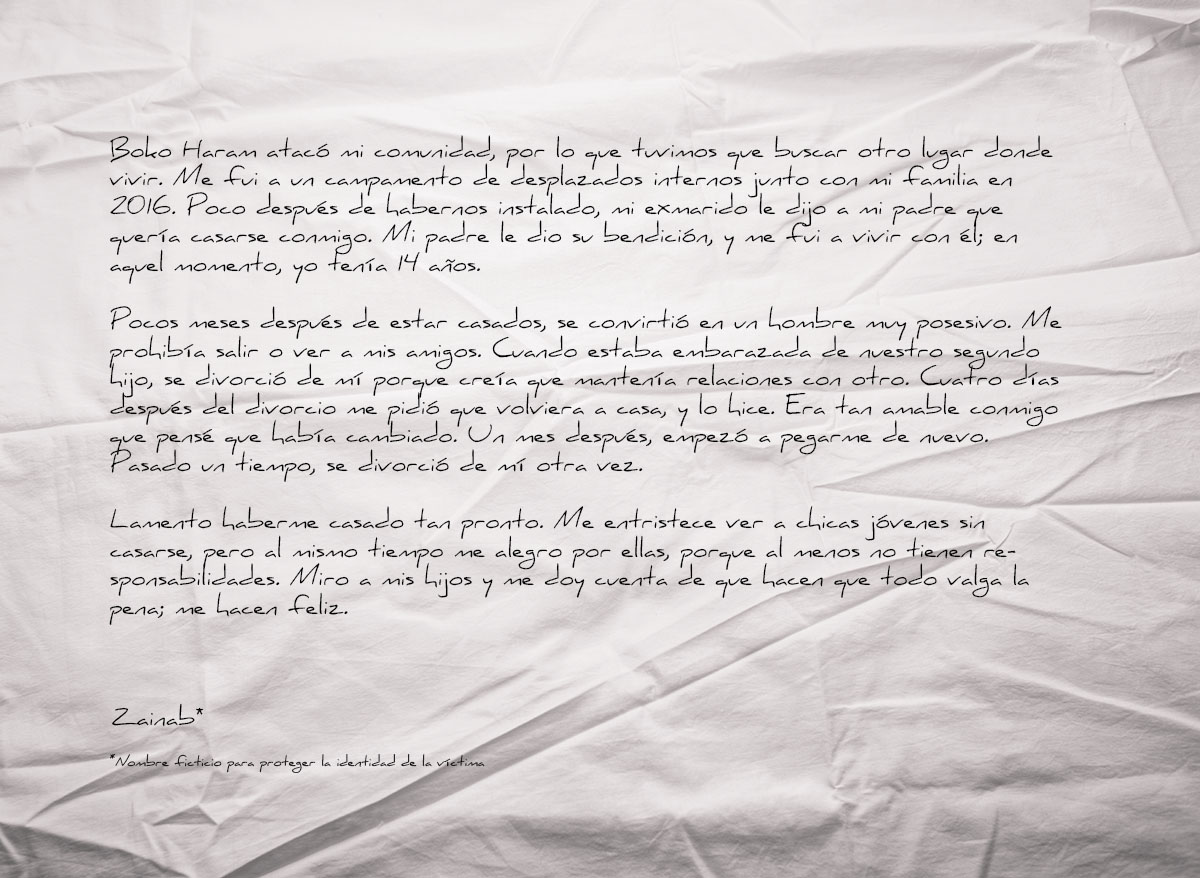 Boko Haram atacó mi comunidad, por lo que tuvimos que buscar otro lugar donde
vivir. Me fui a un campamento de desplazados internos junto con mi familia en
2016. Poco después de habernos instalado, mi exmarido le dijo a mi padre que
quería casarse conmigo. Mi padre le dio su bendición, y me fui a vivir con él; en
aquel momento, yo tenía 14 años.

Pocos meses después de estar casados, se convirtió en un hombre muy posesivo. Me
prohibía salir o ver a mis amigos. Cuando estaba embarazada de nuestro segundo
hijo, se divorció de mí porque creía que mantenía relaciones con otro. Cuatro días
después del divorcio me pidió que volviera a casa, y lo hice. Era tan amable conmigo
que pensé que había cambiado. Un mes después, empezó a pegarme de nuevo.
Pasado un tiempo, se divorció de mí otra vez.

Lamento haberme casado tan pronto. Me entristece ver a chicas jóvenes sin
casarse, pero al mismo tiempo me alegro por ellas, porque al menos no tienen re-
sponsabilidades. Miro a mis hijos y me doy cuenta de que hacen que todo valga la
pena; me hacen feliz.

Zainab*

*Nombre ficticio para proteger la identidad de la víctima